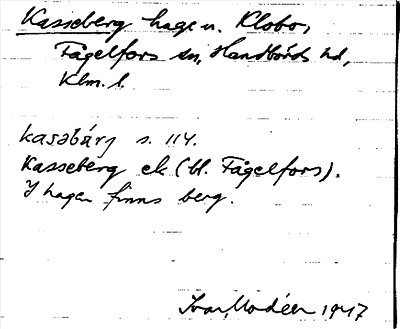 Kasseberg hage u. Klobo,
Fågelfors sn, Handbörds hd,
Klm. l.
kasəbärj s. 114.
Kasseberg ek (bl. Fågelfors).
I hagen finns berg.
Ivar Modéer 1947